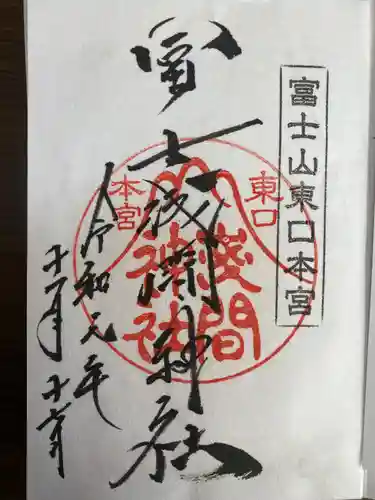 富士山東口本宮
冨士浅間神社
東口
本宮
浅間
神社
令和元年
十一月